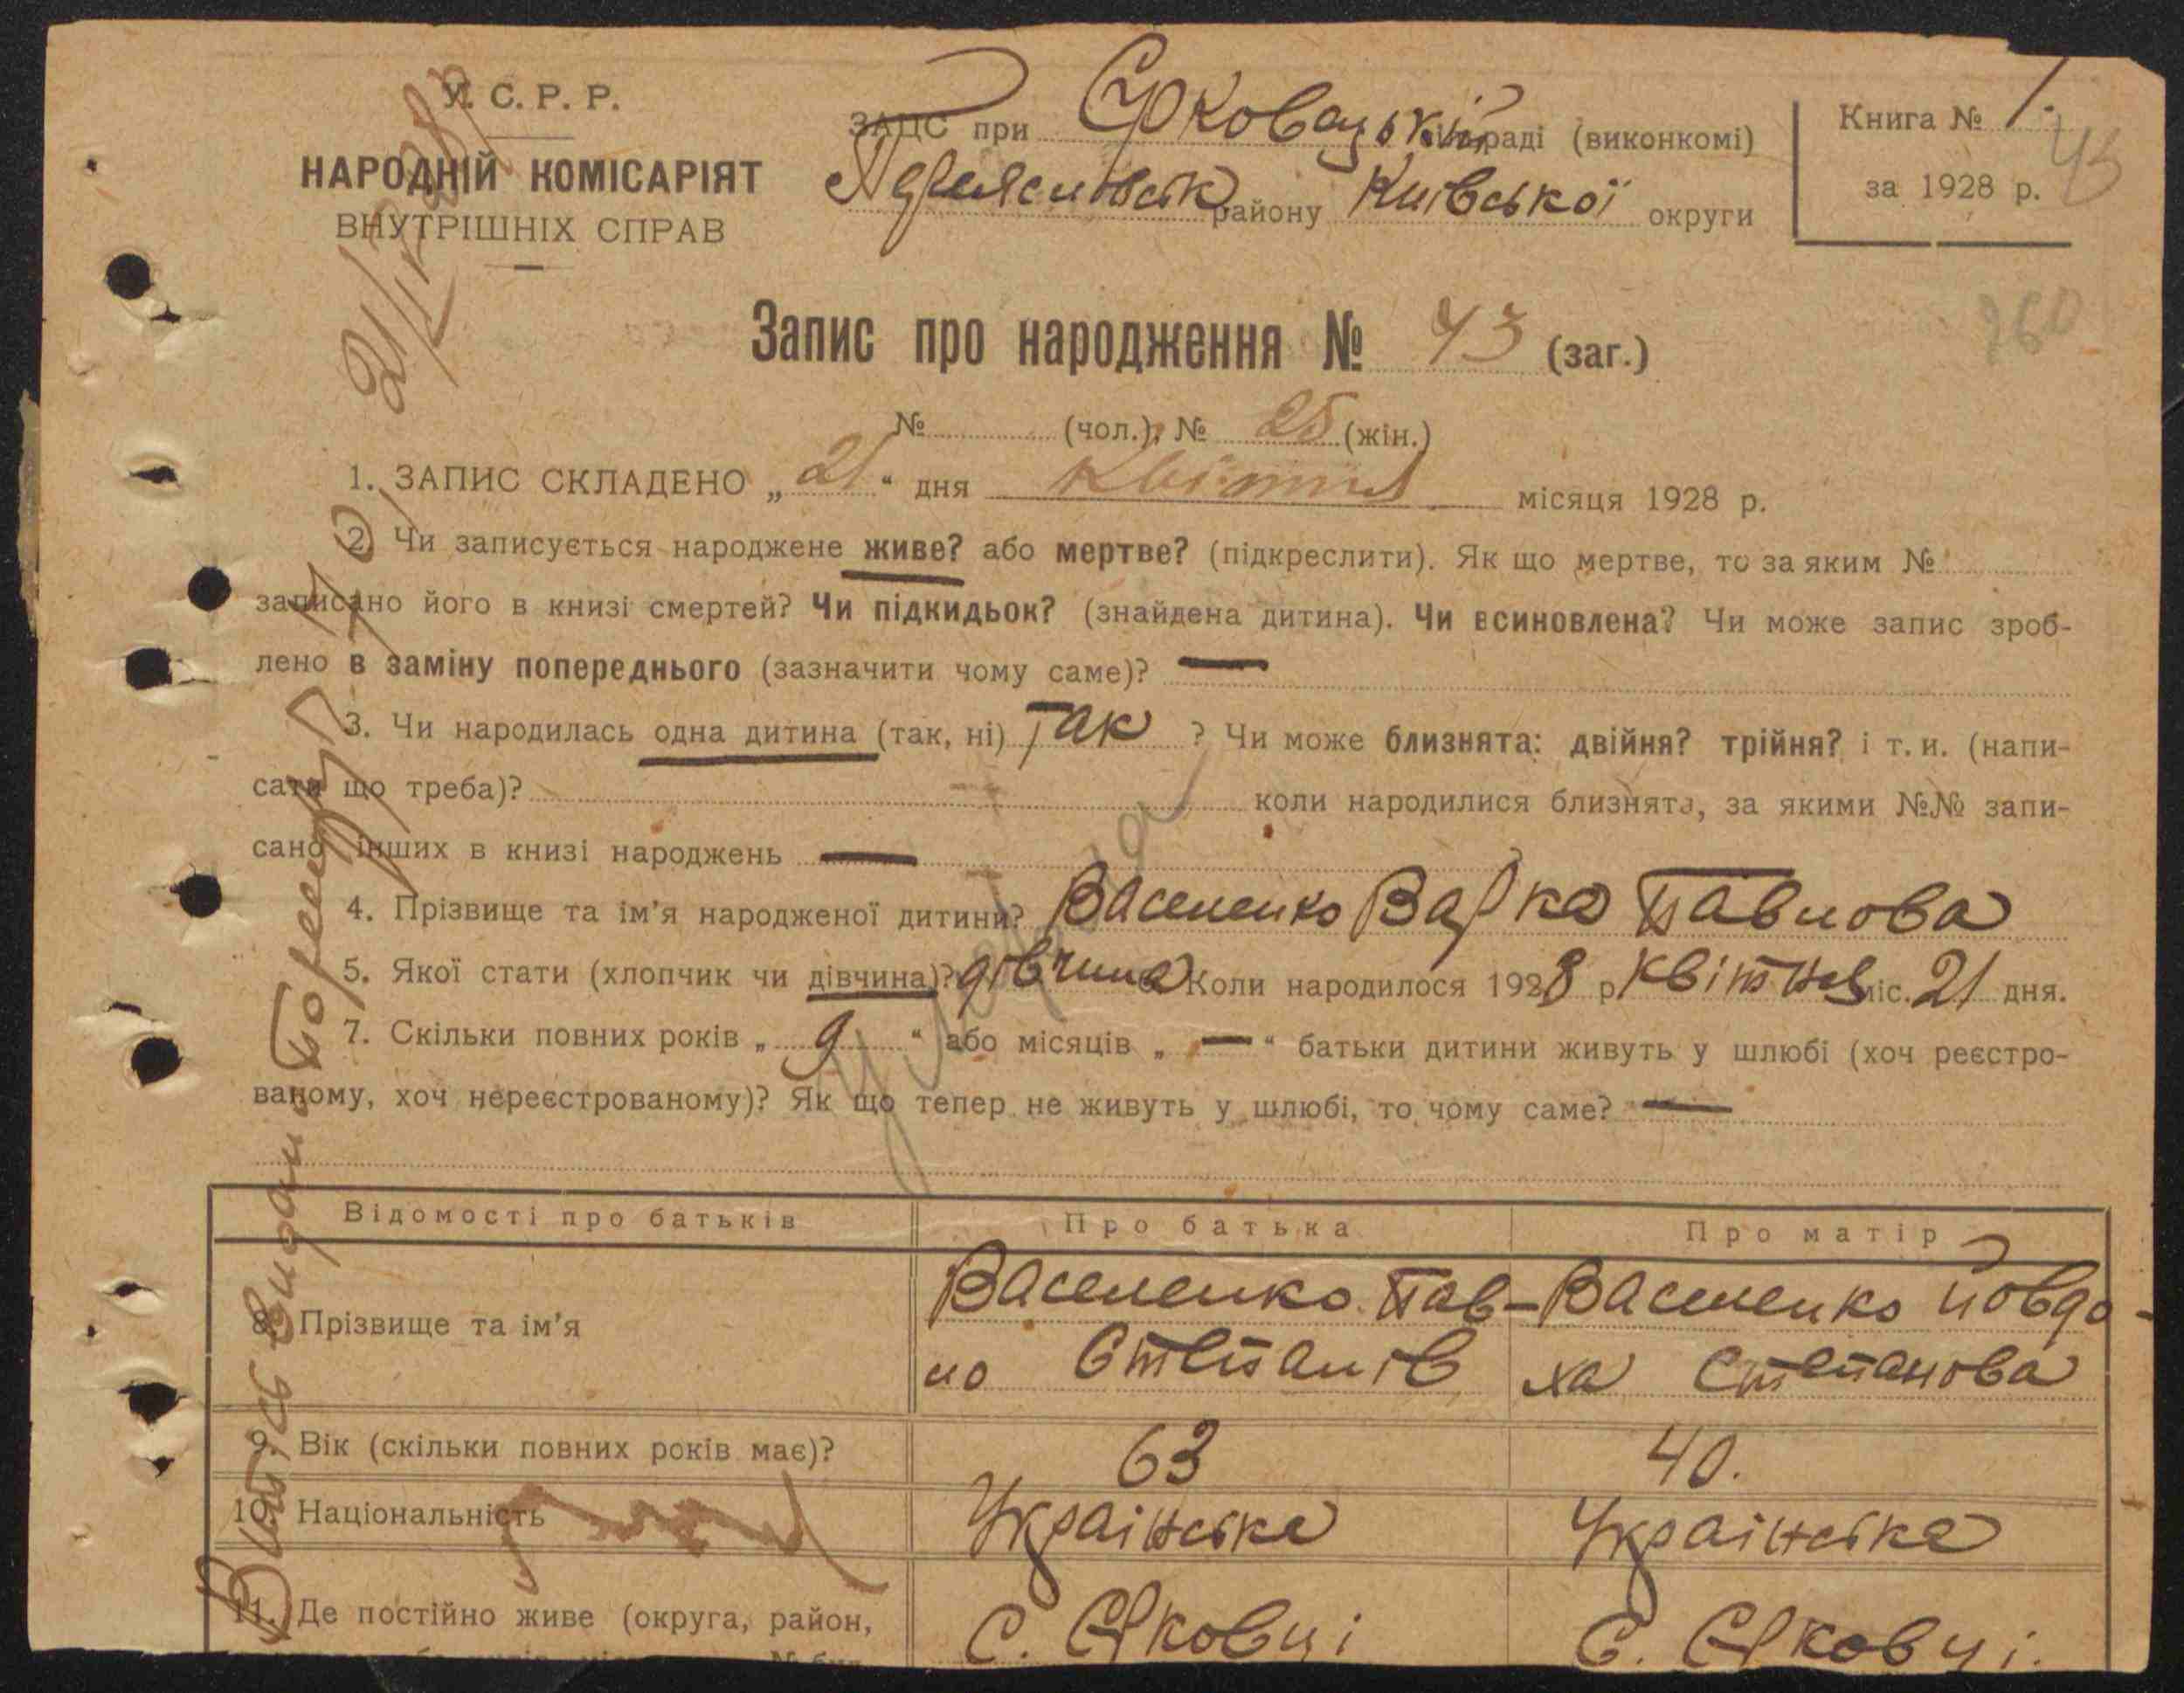 У. С. Р. Р.
НАРОДНІЙ КОМІСАРІЯТ
ВНУТРІШНІХ СПРАВ
ЗАЦС при Єрковецькій сільраді (виконкомі)
Переяславськ району Київської округи
Книга № 1.
за 1928 р.
43
960
Запис про народження № 43 (заг.)
№ (чол.); № 25 (жін.)
1. ЗАПИС СКЛАДЕНО „21“ дня Квітня місяця 1928 р.
2. Чи записується народжене живе? або мертве? (підкреслити). Як що мертве, то за яким №
записано його в книзі смертей? Чи підкидьок? (знайдена дитина). Чи всиновлена? Чи може запис зроб-
лено в заміну попереднього (зазначити чому саме)? —
3. Чи народилась одна дитина (так, ні) Так ? Чи може близнята: двійня? трійня? і т. и. (напи-
сати що треба)? коли народилися близнята, за якими №№ запи-
сано інших в книзі народжень —
4. Прізвище та ім’я народженої дитини? Васеленко Варка Павлова
5. Якої стати (хлопчик чи дівчина)? дівчина 6. Коли народилося 1928 р. Квітня міс. 21 дня.
7. Скільки повних років „9“ або місяців „—“ батьки дитини живуть у шлюбі (хоч реєстро-
ваному, хоч нереєстрованому)? Як що тепер не живуть у шлюбі, то чому саме? —
Відомості про батьків Про батька Про матір
8. Прізвище та ім’я Васеленко Пав- Васеленко Йовдо-
ло Степанів ха Степанова
9. Вік (скільки повних років має)? 63 40.
10. Національність Українська Українська
11. Де постійно живе (округа, район, С. Єрковці С. Єрковці.